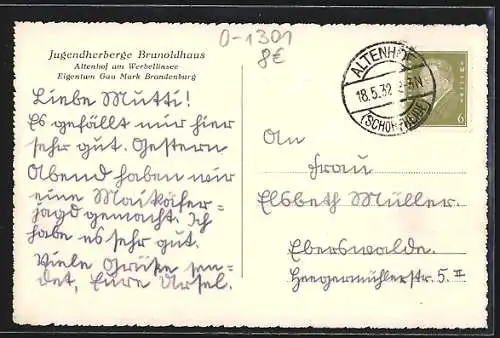 0-1301
8€
Jugendherberge Brunoldhaus
Altenhof am Werbellinsee
Eigentum Gau Mark Brandenburg
Liebe Mutti!
Es gefällt mir hier
sehr gut. Gestern
Abend haben wir
eine Maikäfer=
jagd gemacht. Ich
habe es sehr gut.
Viele Grüße sen=
det, Eure Ursel.
ALTENHOF
18.5.32
(SCHORFHEIDE)
6
An
Frau
Elsbeth Müller.
Eberswalde.
Heegermühlerstr. 5 II